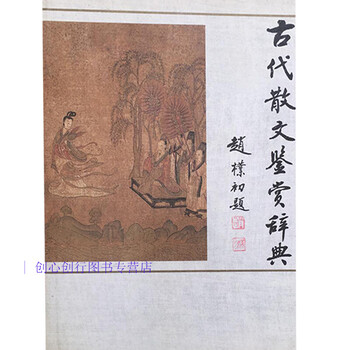 古代散文鉴赏辞典
趙樸初題
创心创行图书专营店